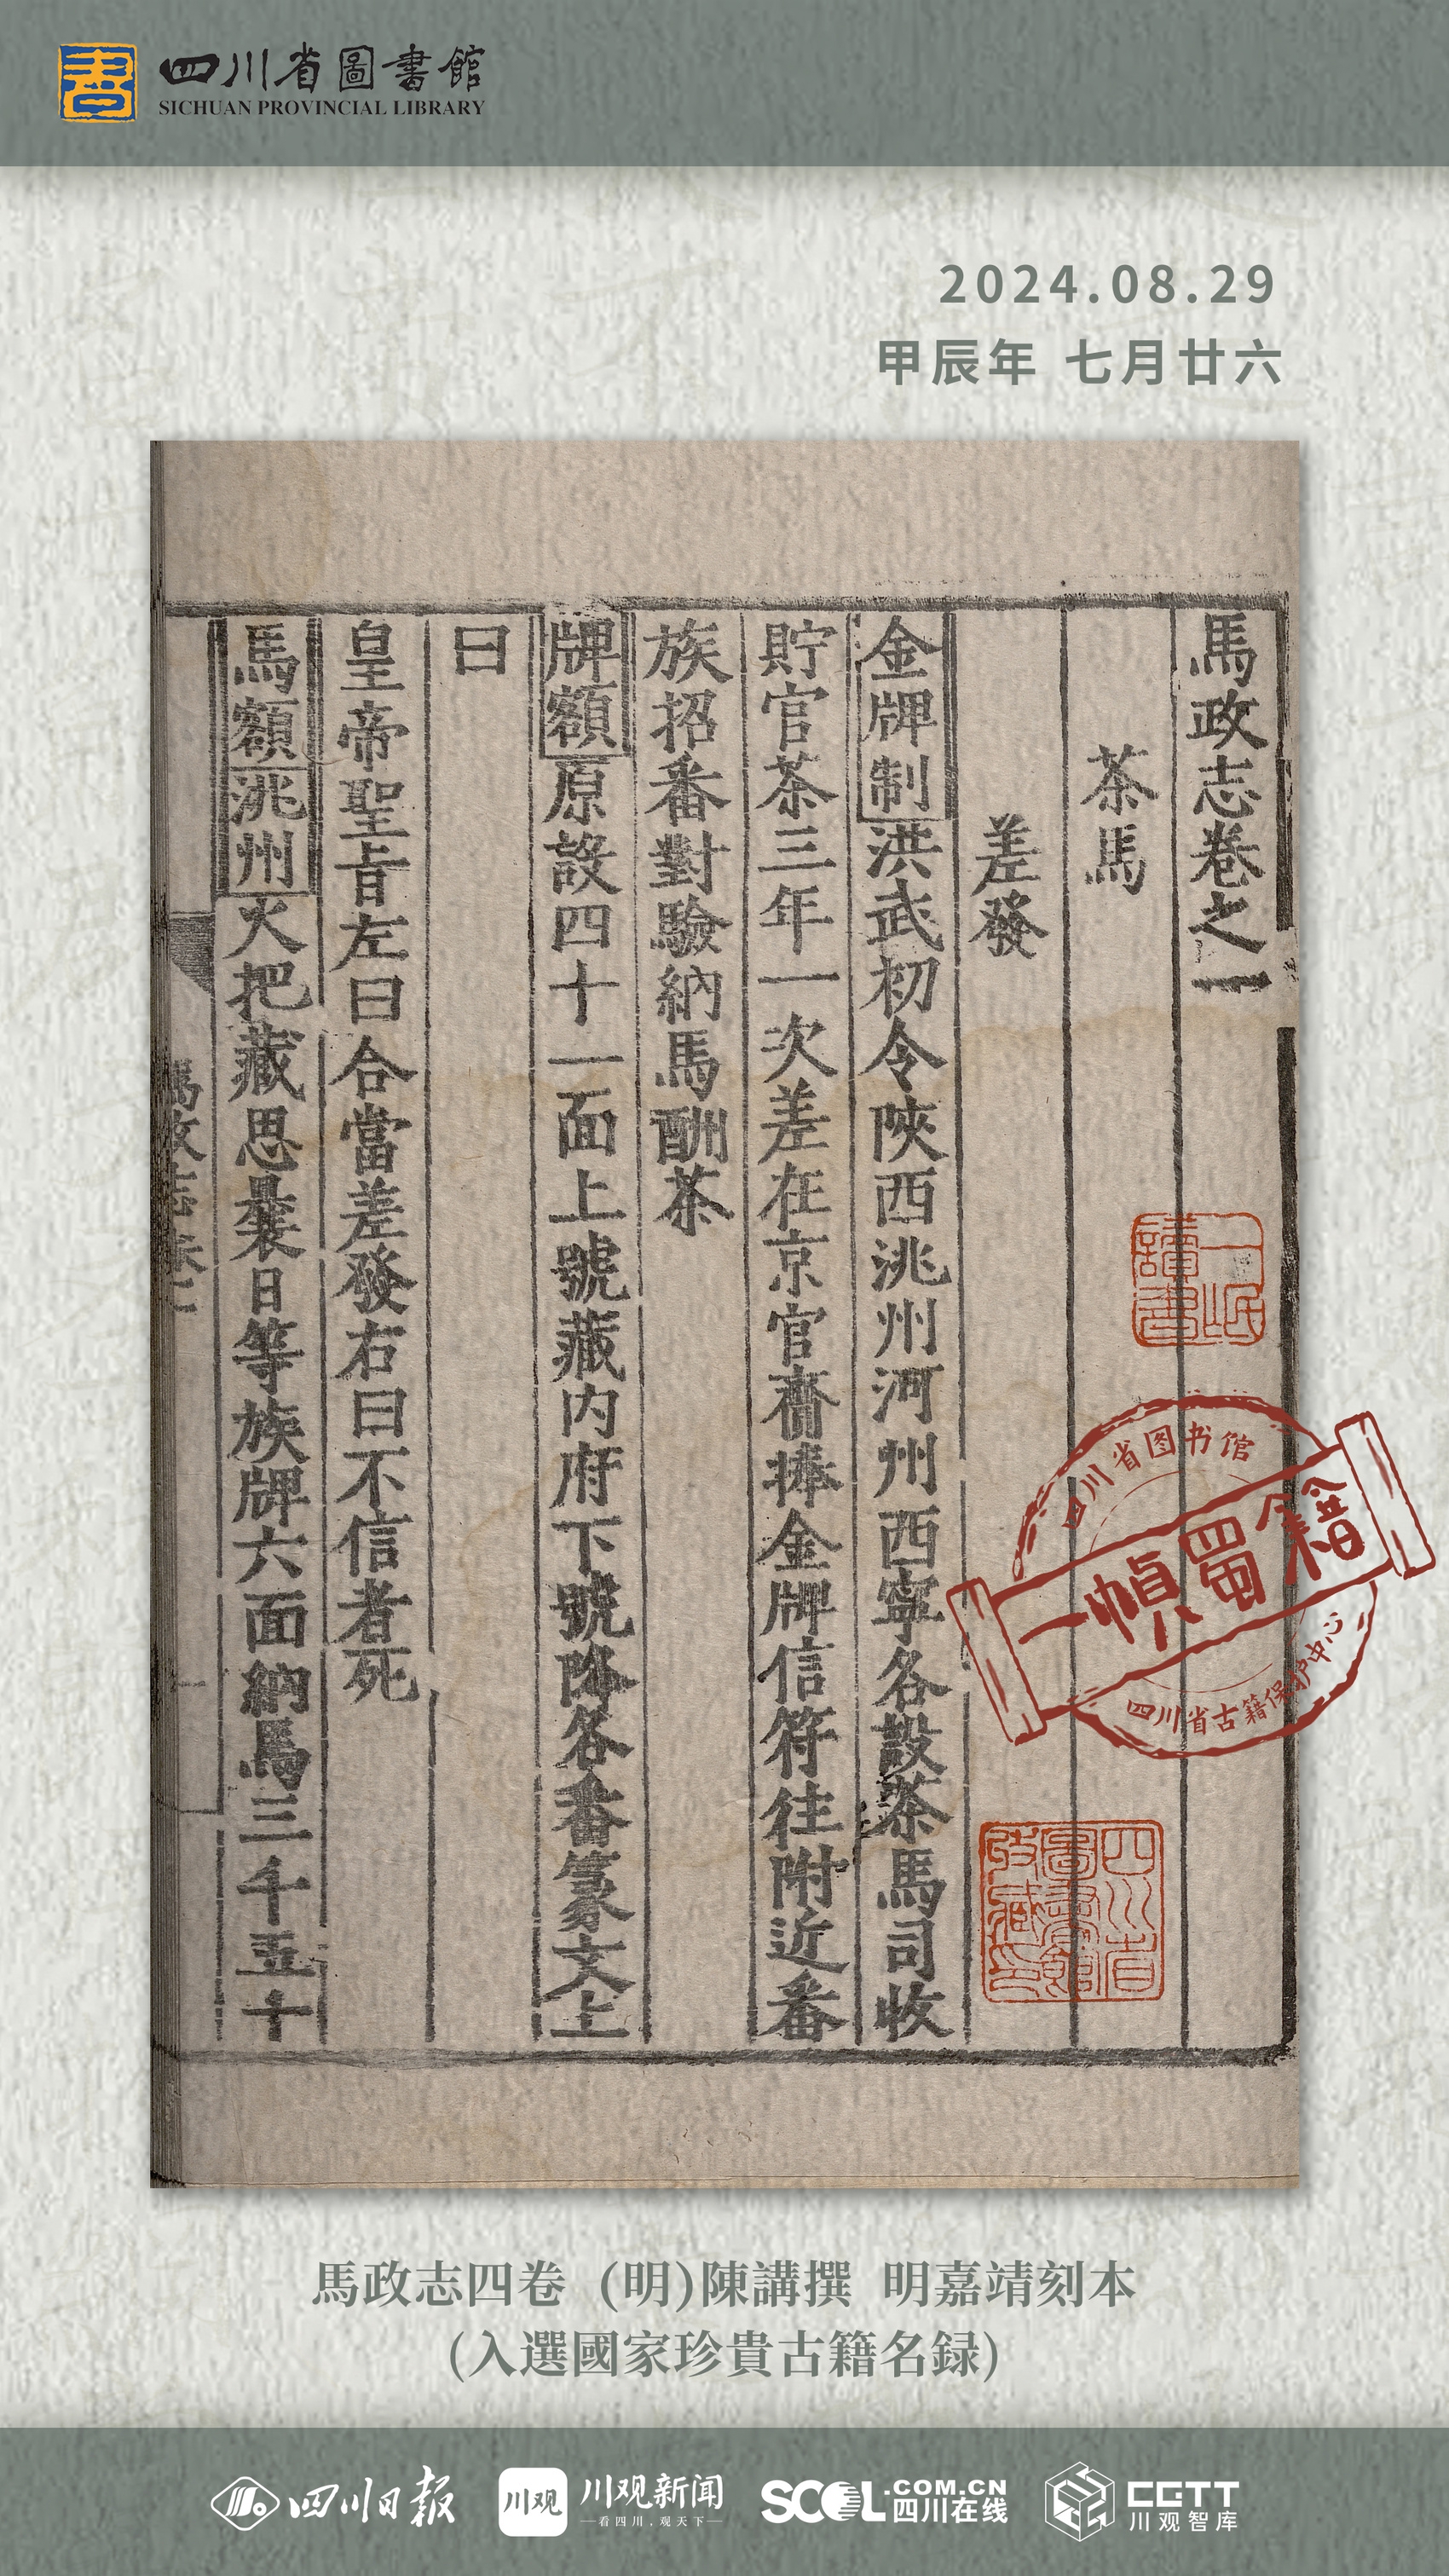 書
四川省圖書館
SICHUAN PROVINCIAL LIBRARY
2024.08.29
甲辰年 七月廿六
馬政志卷之一
茶馬
差發
金牌制洪武初令陝西洮州河州西寧各設茶馬司收
貯官茶三年一次差在京官齎捧金牌信符往附近番
族招番對驗納馬酬茶
牌額原設四十一面上號藏内府下號降各番篆文上
曰
皇帝聖旨左曰合當差發右曰不信者死
馬額洮州火把藏思曩日等族牌六面納馬三千五十
馬政志卷一
一
一氓
讀書
四川省图书馆
一幀蜀籍
四川省古籍保护中心
四川省
圖書館
收藏印
馬政志四卷 (明)陳講撰 明嘉靖刻本
(入選國家珍貴古籍名録)
四川日报
川观
川观新闻
看四川，观天下
SCOL.COM.CN
四川在线
CGTT
川观智库